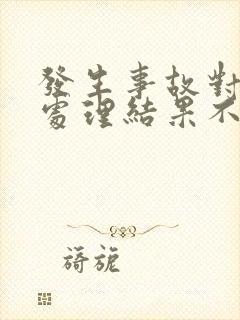 發生事故對
處理結果不
旖旎